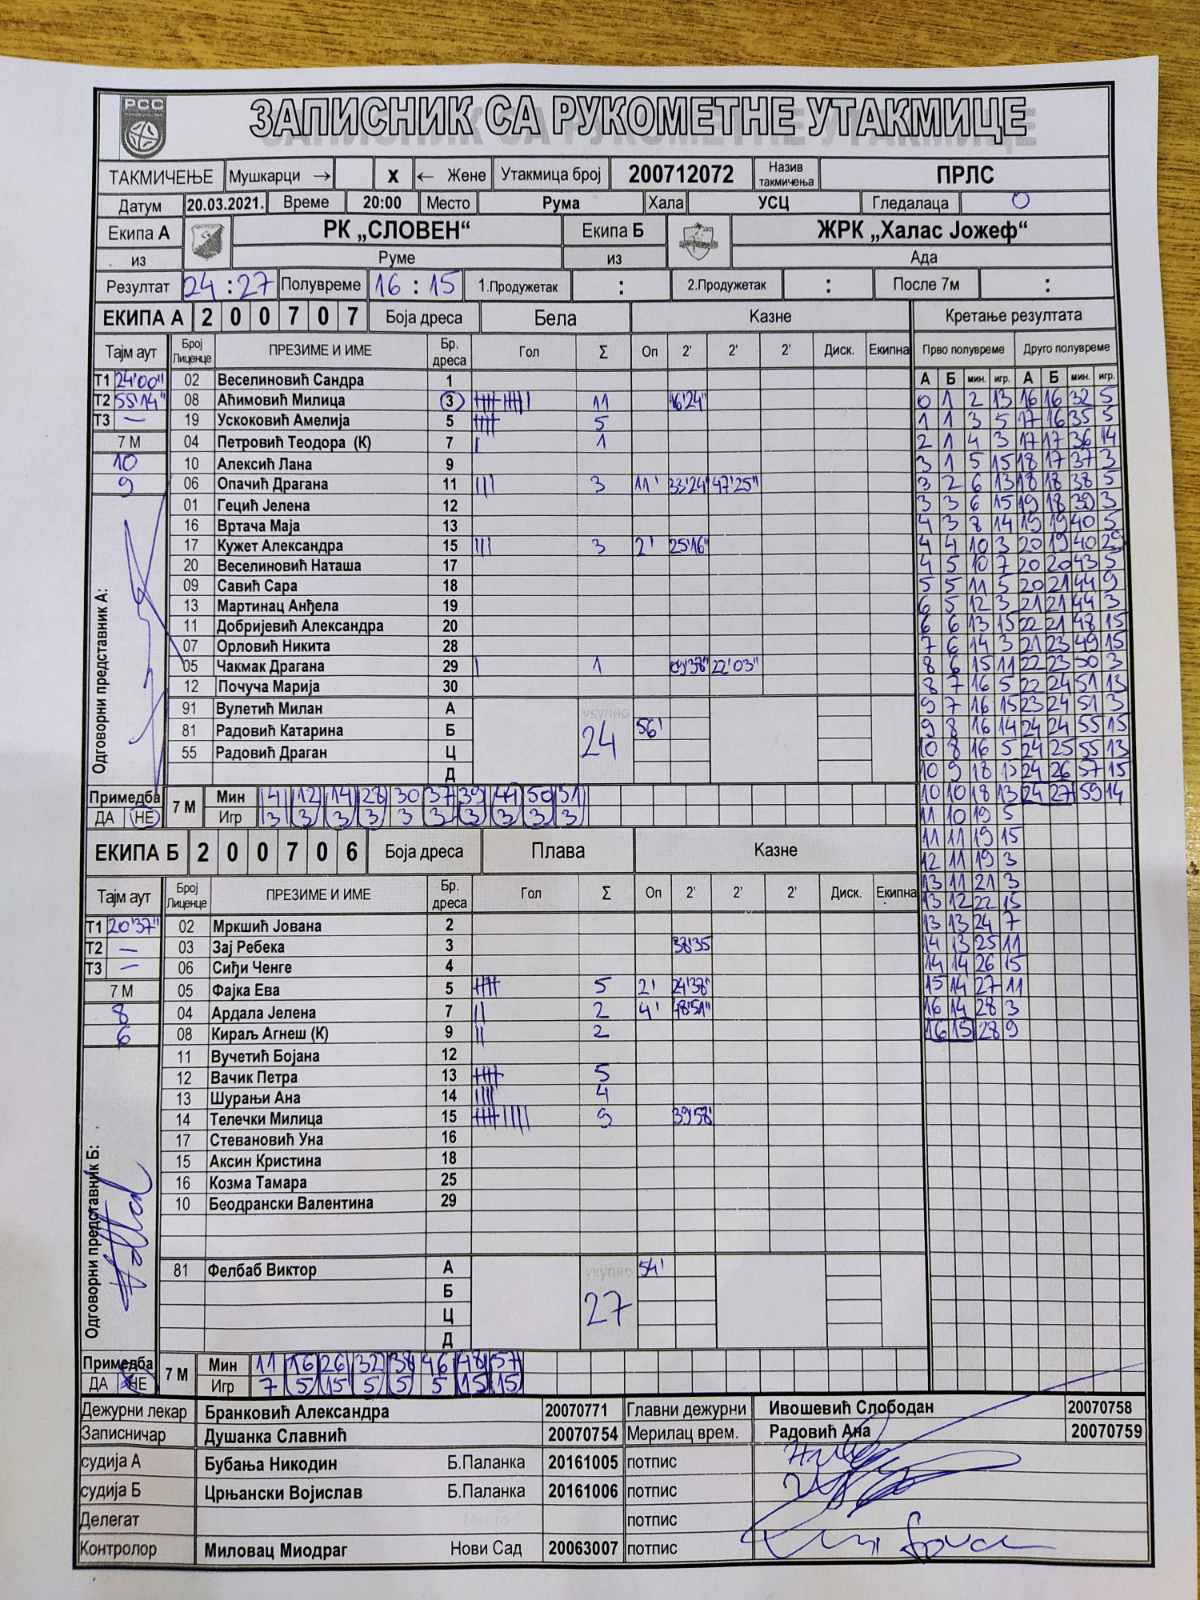 РСС
ЗАПИСНИК СА РУКОМЕТНЕ УТАКМИЦЕ
ТАКМИЧЕЊЕ Мушкарци → X ← Жене Утакмица број 200712072 Назив такмичења ПРЛС
Датум 20.03.2021. Време 20:00 Место Рума Хала УСЦ Гледалаца 0
Екипа А РК „СЛОВЕН“ Екипа Б ЖРК „Халас Јожеф“
из Руме из Ада
Резултат 24 : 27 Полувреме 16 : 15 1.Продужетак : 2.Продужетак : После 7м :
ЕКИПА А 2 0 0 7 0 7 Боја дреса Бела Казне Кретање резултата
Тајм аут Број Лиценце ПРЕЗИМЕ И ИМЕ Бр. дреса Гол Σ Оп 2' 2' 2' Диск. Екипна Прво полувреме Друго полувреме
А Б мин. игр. А Б мин. игр.
Т1 24'00" 02 Веселиновић Сандра 1
Т2 55'14" 08 Аћимовић Милица 3 11 16'24" 0 1 2 13 16 16 32 5
Т3 — 19 Ускоковић Амелија 5 5 1 1 3 5 17 16 35 5
7 М 04 Петровић Теодора (К) 7 1 2 1 4 3 17 17 36 14
10 10 Алексић Лана 9 3 1 5 15 18 17 37 3
9 06 Опачић Драгана 11 3 11' 33'24" 47'25" 3 2 6 13 18 18 38 5
01 Гецић Јелена 12 3 3 6 15 19 18 39 3
16 Вртача Маја 13 4 3 8 14 19 19 40 5
17 Кужет Александра 15 3 2' 25'16" 4 4 10 3 20 19 40 29
20 Веселиновић Наташа 17 4 5 10 7 20 20 43 5
09 Савић Сара 18 5 5 11 5 20 21 44 9
13 Мартинац Анђела 19 6 5 12 3 21 21 44 3
11 Добријевић Александра 20 6 6 13 15 22 21 48 15
07 Орловић Никита 28 7 6 14 3 21 23 49 15
05 Чакмак Драгана 29 1 09'38" 22'03" 8 6 15 11 22 23 50 3
12 Почуча Марија 30 8 7 16 5 22 24 51 13
91 Вулетић Милан А укупно 9 7 16 15 23 24 51 3
81 Радовић Катарина Б 24 56' 9 8 16 14 24 24 55 15
55 Радовић Драган Ц 10 8 16 5 24 25 55 13
Д 10 9 18 13 24 26 57 15
Одговорни представник А:
Примедба 7 М Мин 14 12 14 28 30 37 39 44 50 51 10 10 18 13 24 27 59 14
ДА НЕ Игр 3 3 3 3 3 3 3 3 3 3 11 10 19 5
11 11 19 15
ЕКИПА Б 2 0 0 7 0 6 Боја дреса Плава Казне 12 11 19 3
Тајм аут Број Лиценце ПРЕЗИМЕ И ИМЕ Бр. дреса Гол Σ Оп 2' 2' 2' Диск. Екипна 13 11 21 3
13 12 22 15
Т1 20'37" 02 Мркшић Јована 2 13 13 24 7
Т2 — 03 Зај Ребека 3 38'35 14 13 25 11
Т3 — 06 Сиђи Ченге 4 14 14 26 15
7 М 05 Фајка Ева 5 5 2' 24'38" 15 14 27 11
8 04 Ардала Јелена 7 2 4' 48'51" 16 14 28 3
6 08 Кираљ Агнеш (К) 9 2 16 15 28 9
11 Вучетић Бојана 12
12 Вачик Петра 13 5
13 Шурањи Ана 14 4
14 Телечки Милица 15 9 39'58'
17 Стевановић Уна 16
15 Аксин Кристина 18
16 Козма Тамара 25
10 Беодрански Валентина 29
81 Фелбаб Виктор А укупно 54'
Б 27
Ц
Д
Одговорни представник Б:
Примедба 7 М Мин 11 16 26 32 38 46 48 57
ДА НЕ Игр 7 5 15 5 5 5 15 15
Дежурни лекар Бранковић Александра 20070771 Главни дежурни Ивошевић Слободан 20070758
Записничар Душанка Славнић 20070754 Мерилац врем. Радовић Ана 20070759
судија А Бубања Никодин Б.Паланка 20161005 потпис
судија Б Црњански Војислав Б.Паланка 20161006 потпис
Делегат потпис
Контролор Миловац Миодраг Нови Сад 20063007 потпис